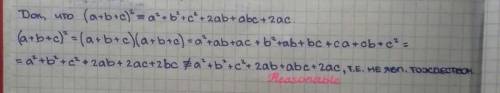 Док, что (a+b+c)² = a²+b²+c²+2ab+abc+2ac
(a+b+c)² = (a+b+c)(a+b+c) = a²+ab+ac+b²+ab+bc+ca+cb+c² =
= a²+b²+c²+2ab+2ac+2bc ≠ a²+b²+c²+2ab+abc+2ac, т.е. не явл. тождеством.
Reasonable